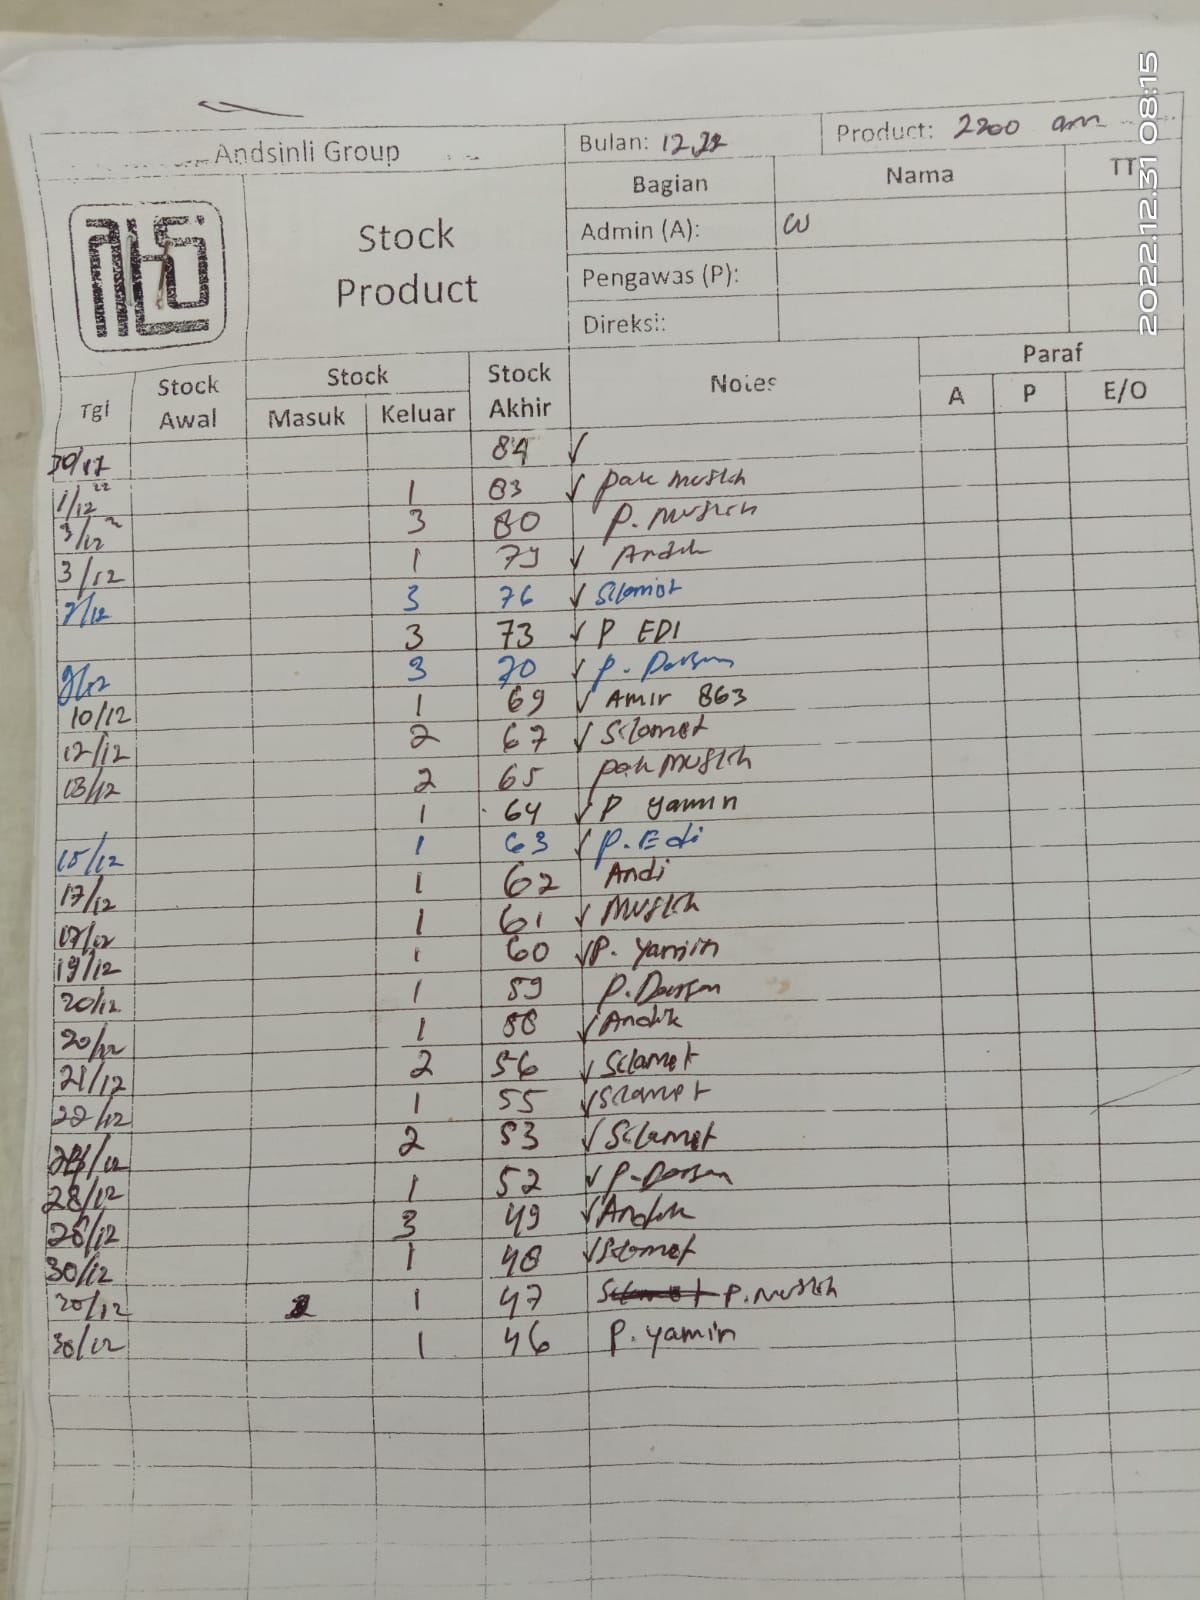 Andsinli Group
Bulan: 12.22
Product: 2200 am
Stock Product
Bagian Nama TT
Admin (A): W
Pengawas (P):
Direksi:
Tgl Stock Awal Stock Masuk Stock Keluar Stock Akhir Notes Paraf A P E/O
84 ✓
1/12 22 1 83 ✓ pak muslih
3/12 3 80 P. muslih
3/12 1 79 ✓ Andik
7/12 3 76 ✓ Slamet
3 73 ✓ P EDI
9/12 3 70 ✓ P. Darsan
10/12 1 69 ✓ Amir 863
12/12 2 67 ✓ Slamet
13/12 2 65 pak muslih
1 64 ✓ P yamin
15/12 1 63 ✓ P. Edi
17/12 1 62 Andi
17/12 1 61 ✓ Muslih
19/12 1 60 ✓ P. yamin
20/12 1 59 P. Darsan
20/12 1 58 ✓ Andik
21/12 2 56 ✓ Slamet
22/12 1 55 ✓ Slamet
2 53 ✓ Slamet
28/12 1 52 ✓ P. Darsan
28/12 3 49 ✓ Andik
30/12 1 48 ✓ Slamet
30/12 1 47 P. Muslih
30/12 1 46 P. yamin
2022.12.31 08:15